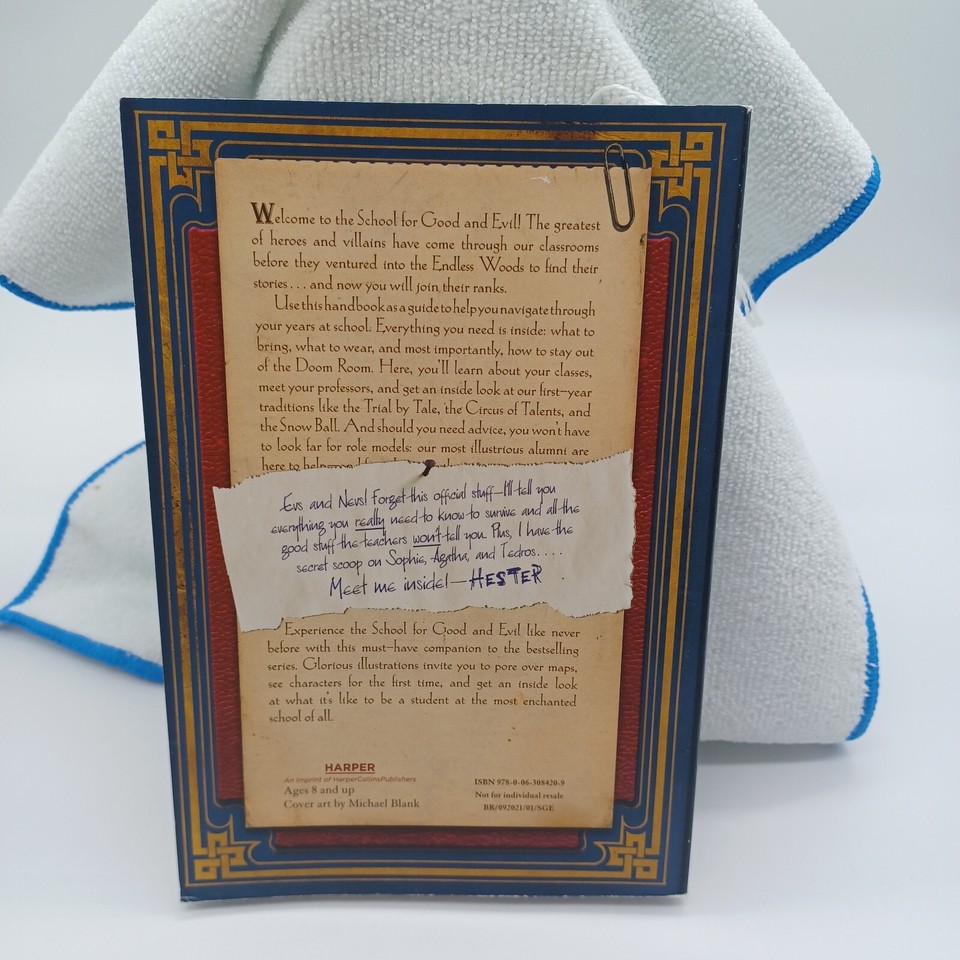 Welcome to the School for Good and Evil! The greatest
of heroes and villains have come through our classrooms
before they ventured into the Endless Woods to find their
stories . . . and now you will join their ranks.
Use this handbook as a guide to help you navigate through
your years at school. Everything you need is inside: what to
bring, what to wear, and most importantly, how to stay out
of the Doom Room. Here, you'll learn about your classes,
meet your professors, and get an inside look at our first-year
traditions like the Trial by Tale, the Circus of Talents, and
the Snow Ball. And should you need advice, you won't have
to look far for role models: our most illustrious alumni are
here to help
Evs and Nevs! Forget this official stuff—I'll tell you
everything you really need to know to survive and all the
good stuff the teachers won't tell you. Plus, I have the
secret scoop on Sophie, Agatha, and Tedros. . . .
Meet me inside!—HESTER
Experience the School for Good and Evil like never
before with this must-have companion to the bestselling
series. Glorious illustrations invite you to pore over maps,
see characters for the first time, and get an inside look
at what it's like to be a student at the most enchanted
school of all.
HARPER
An Imprint of HarperCollinsPublishers
Ages 8 and up
Cover art by Michael Blank
ISBN 978-0-06-308420-9
Not for individual resale
BR/092021/01/SGE